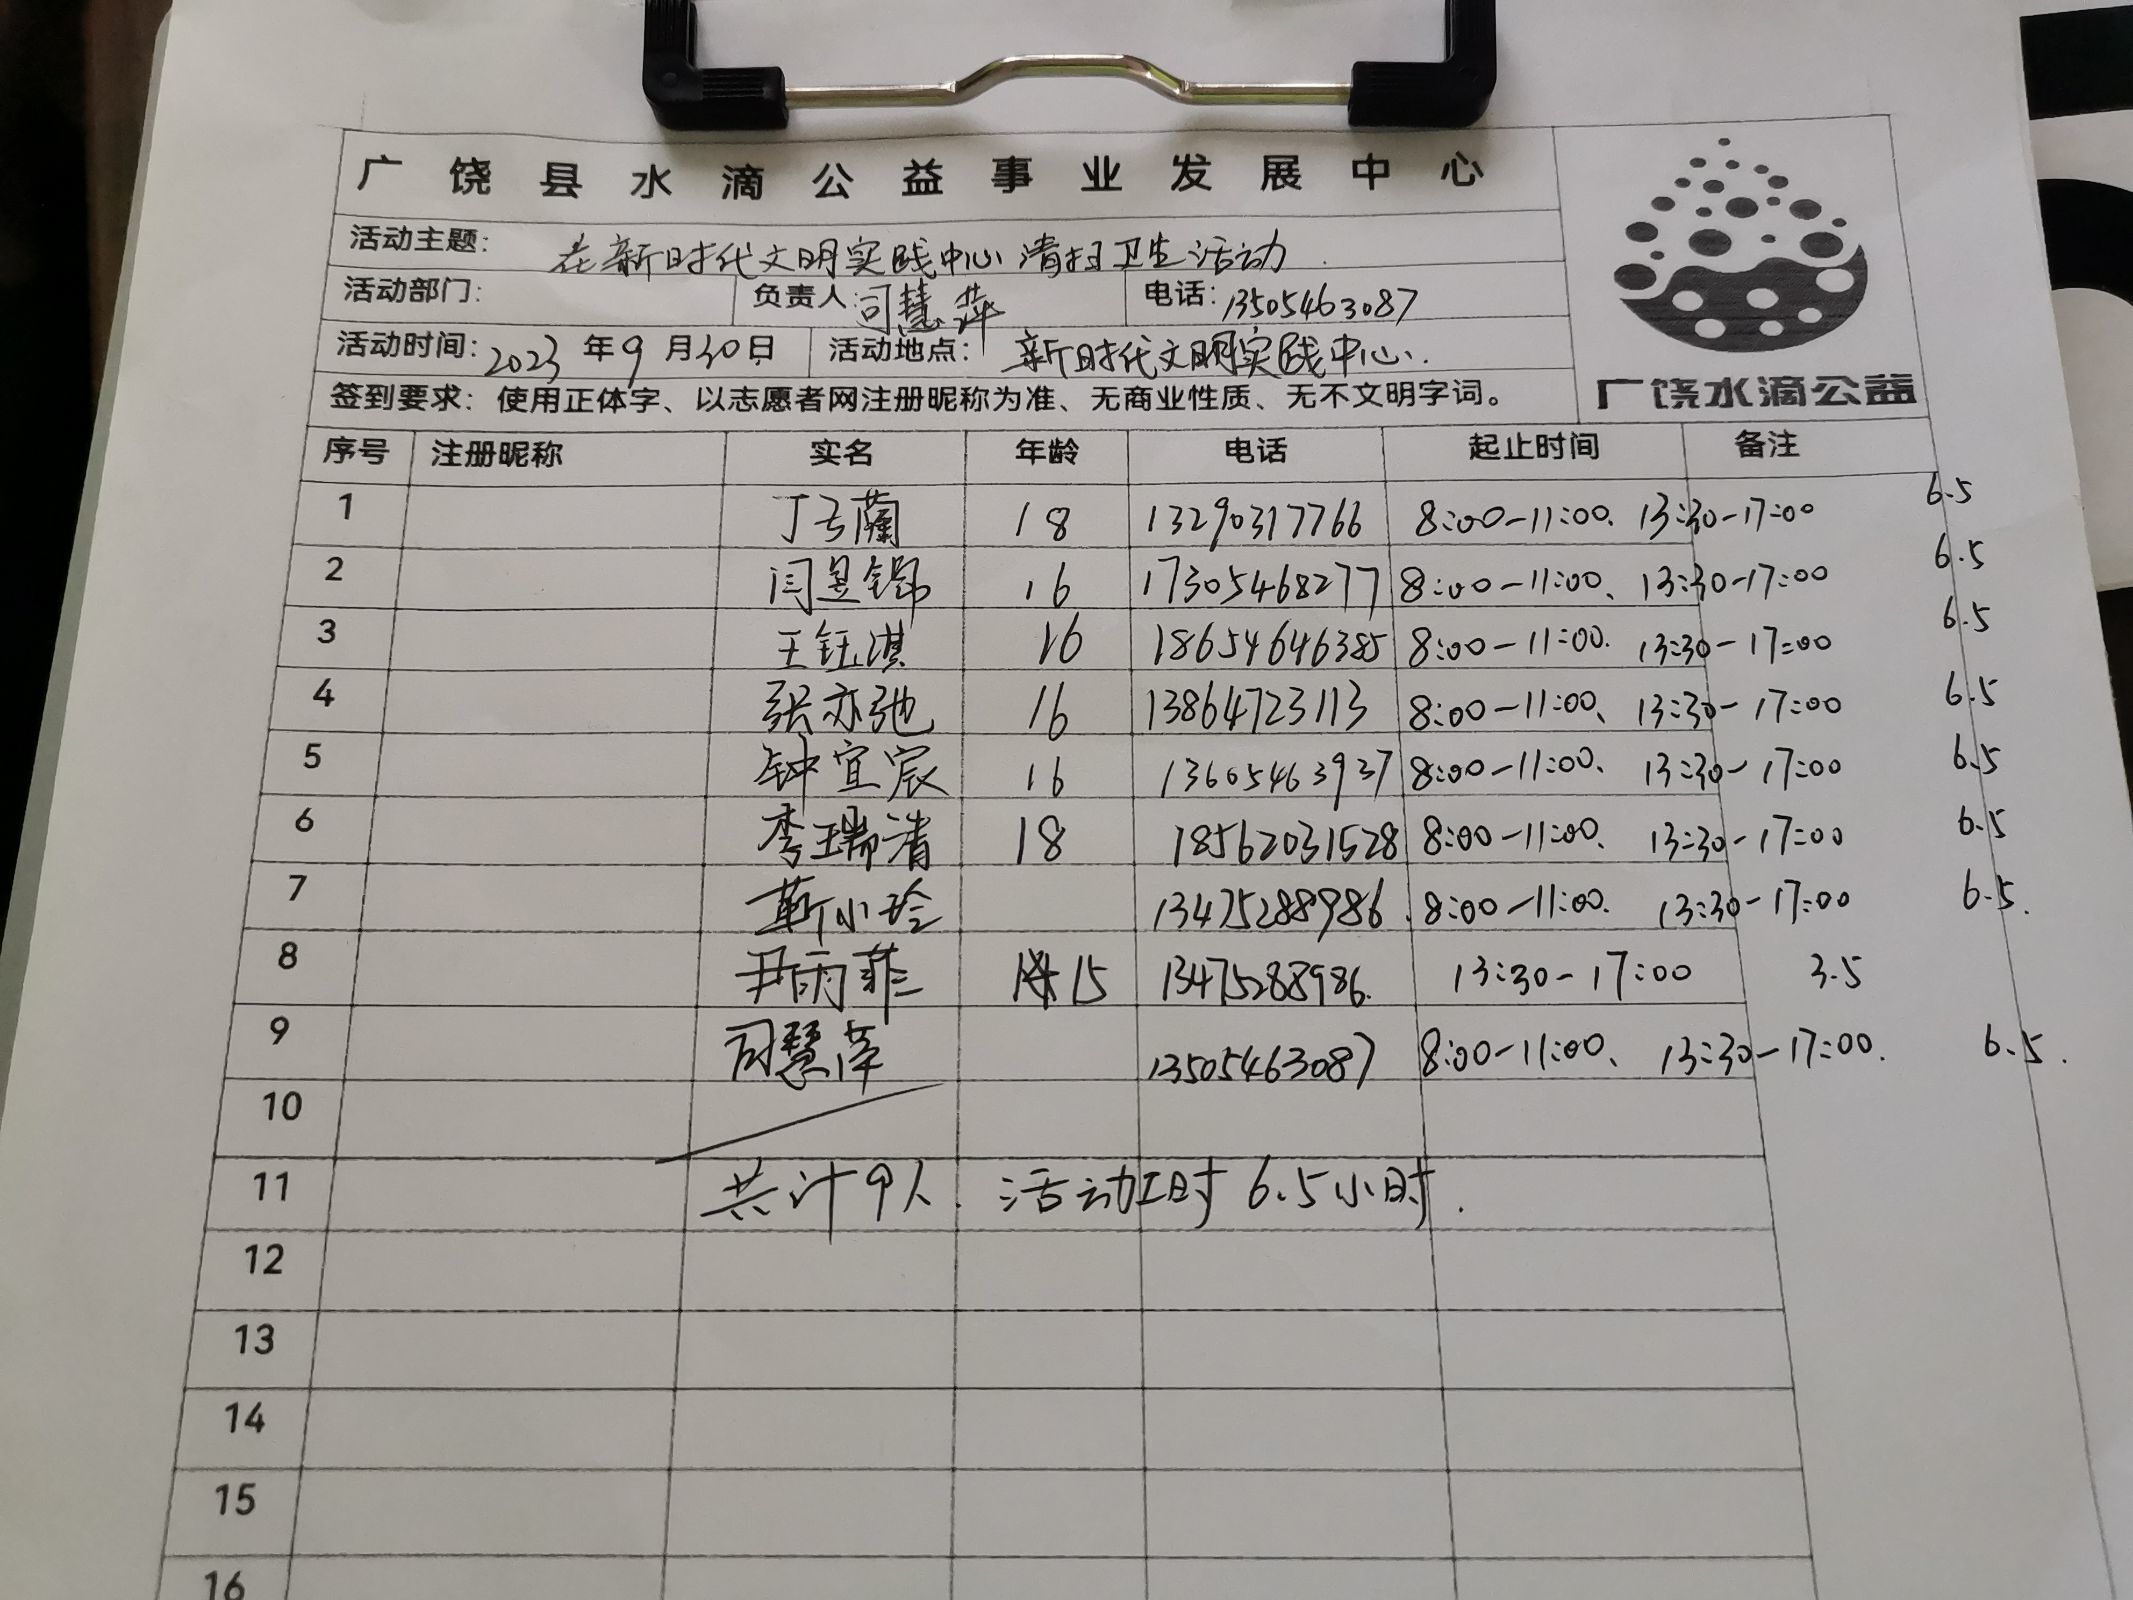 广饶县水滴公益事业发展中心
活动主题: 在新时代文明实践中心清扫卫生活动
活动部门: 负责人:司慧萍 电话:13505463087
活动时间:2023年9月30日 活动地点:新时代文明实践中心.
签到要求:使用正体字、以志愿者网注册昵称为准、无商业性质、无不文明字词。
广饶水滴公益
序号 注册昵称 实名 年龄 电话 起止时间 备注
1 丁子蘭 18 13290317766 8:00-11:00. 13:30-17:00 6.5
2 闫昱锦 16 17305468277 8:00-11:00、13:30-17:00 6.5
3 王钰淇 16 18654646385 8:00-11:00. 13:30-17:00 6.5
4 张亦弛 16 13864723113 8:00-11:00、13:30-17:00 6.5
5 钟宜宸 16 13605463937 8:00-11:00、13:30-17:00 6.5
6 李瑞清 18 18562031528 8:00-11:00. 13:30-17:00 6.5
7 靳小玲 13475288986. 8:00-11:00. 13:30-17:00 6.5.
8 尹雨菲 15 13475288986. 13:30-17:00 3.5
9 司慧萍 13505463087 8:00-11:00、13:30-17:00. 6.5.
10
11 共计9人. 活动工时6.5小时.
12
13
14
15
16